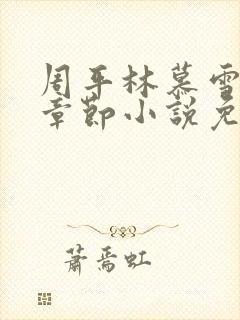 周平林慕雪
章節小說免
蕭焉虹